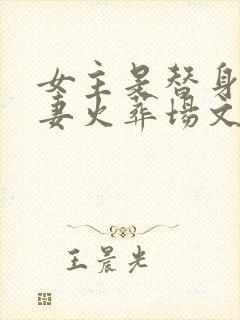 女主是替身
妻火葬场文
王晨光